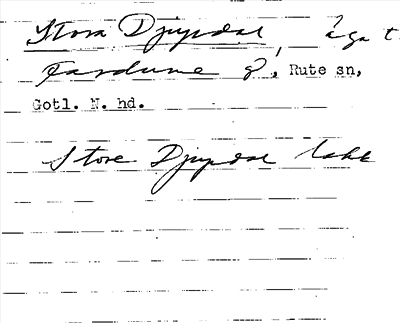 Stora Djupdal, äga t
Fardume g, Rute sn,
Gotl. N. hd.
Store Djupdal